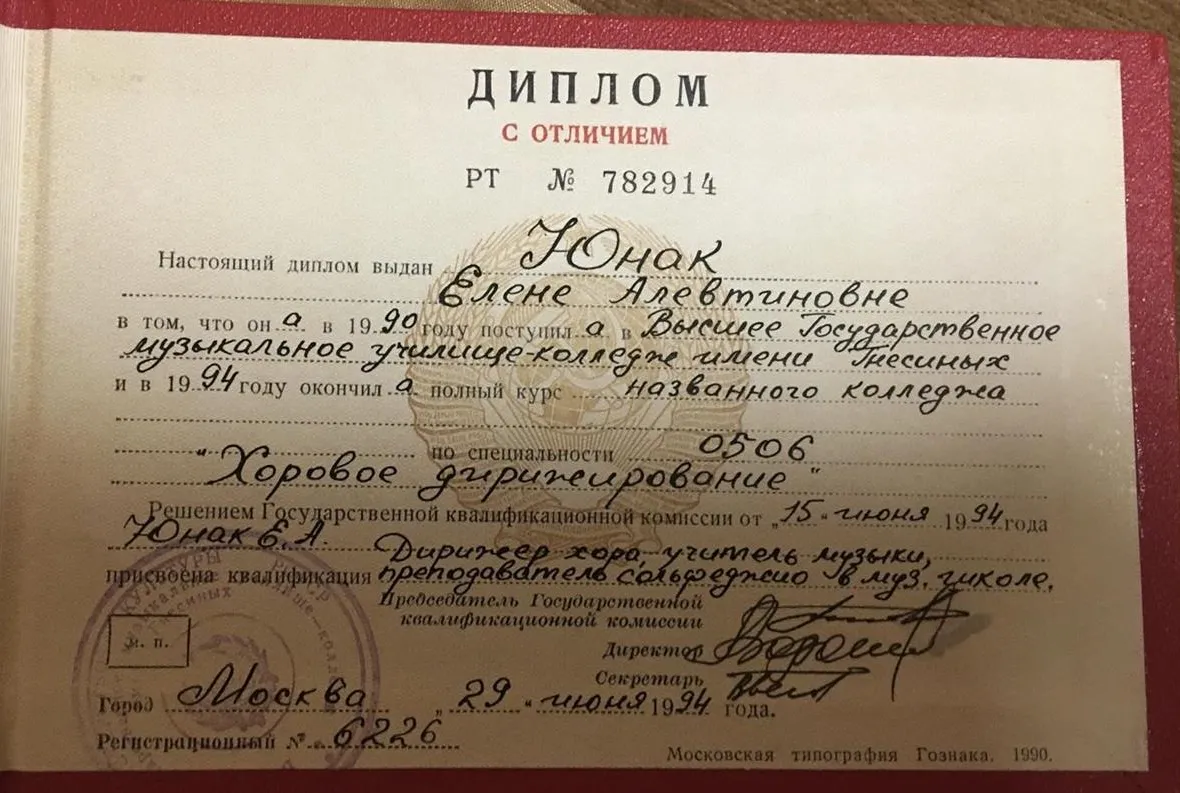 ДИПЛОМ
С ОТЛИЧИЕМ
РТ № 782914
Настоящий диплом выдан Юнак
Елене Алевтиновне
в том, что он а в 1990 году поступил а в Высшее Государственное
музыкальное училище-колледж имени Гнесиных
и в 1994 году окончил а полный курс названного колледжа
по специальности 0506
"Хоровое дирижирование"
Решением Государственной квалификационной комиссии от „15" июня 1994 года
Юнак Е.А. Дирижер хора, учитель музыки,
присвоена квалификация преподаватель сольфеджио в муз. школе.
Председатель Государственной
квалификационной комиссии
Директор
Секретарь
м. п.
Город Москва „29" июня 1994 года.
Регистрационный № 6226
Московская типография Гознака. 1990.